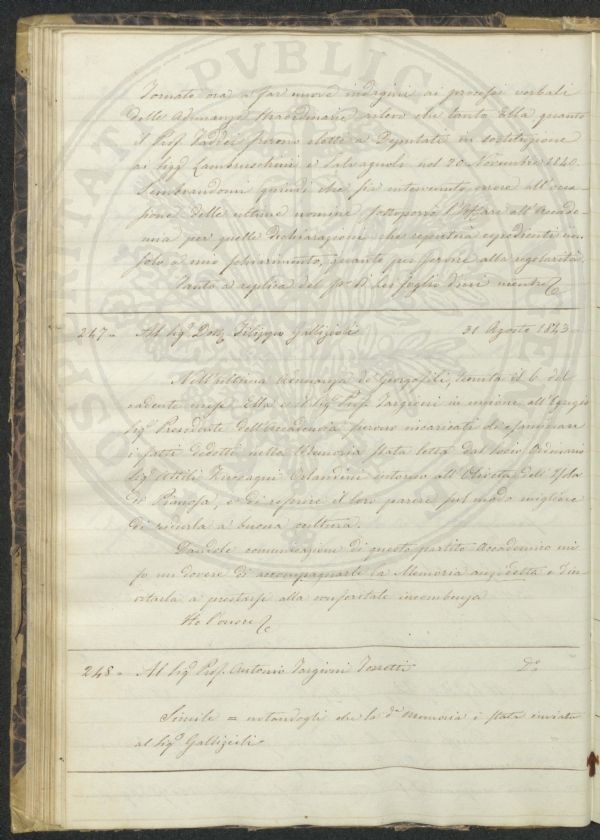 Tornate ora a far nuove indagini ai processi verbali
delle Adunanze straordinarie che tanto Ella quanto
il Prof. Taddei furono eletti a Deputati in sostituzione
ai Sigg. Lambruschini e Salvagnoli nel 20 Novembre 1840.
Sembrandomi quindi che sia intervenuto errore all'occa-
sione delle ultime nomine sottoporrò l'affare all'Accade-
mia per quelle dichiarazioni che reputerà espedienti
solo a mio schiarimento, quanto per servire alla regolarità.
Tanto a replica del foglio mentre
247 = Al Sigr. Dott. Filippo Gallizioli 31 Agosto 1843
Nell'ultima Adunanza de' Georgofili, tenuta il 6 del
cadente mese Ella e il Sigr. Prof. Targioni in unione all'Egregio
Sigr. Presidente dell'Accademia furono incaricati di esaminare
i fatti dedotti nella Memoria stata letta dal Socio Ordinario
Sigr. Attilio Zuccagni Orlandini intorno all'Oliveta dell'Isola
di Pianosa, e di referire il loro parere sul modo migliore
di ridurla a buona cultura.
Facendole comunicazione di questo partito Accademico mi
fo un dovere di accompagnarle la Memoria anzidetta e d'in-
vitarla a prestarsi alla confertale incombenza
Ho l'onore
248 = Al Sigr. Prof. Antonio Targioni Tozzetti Do.
Simile = notandogli che la da. Memoria è stata inviata
al Sigr. Gallizioli.
SPERITATI PVBLIC